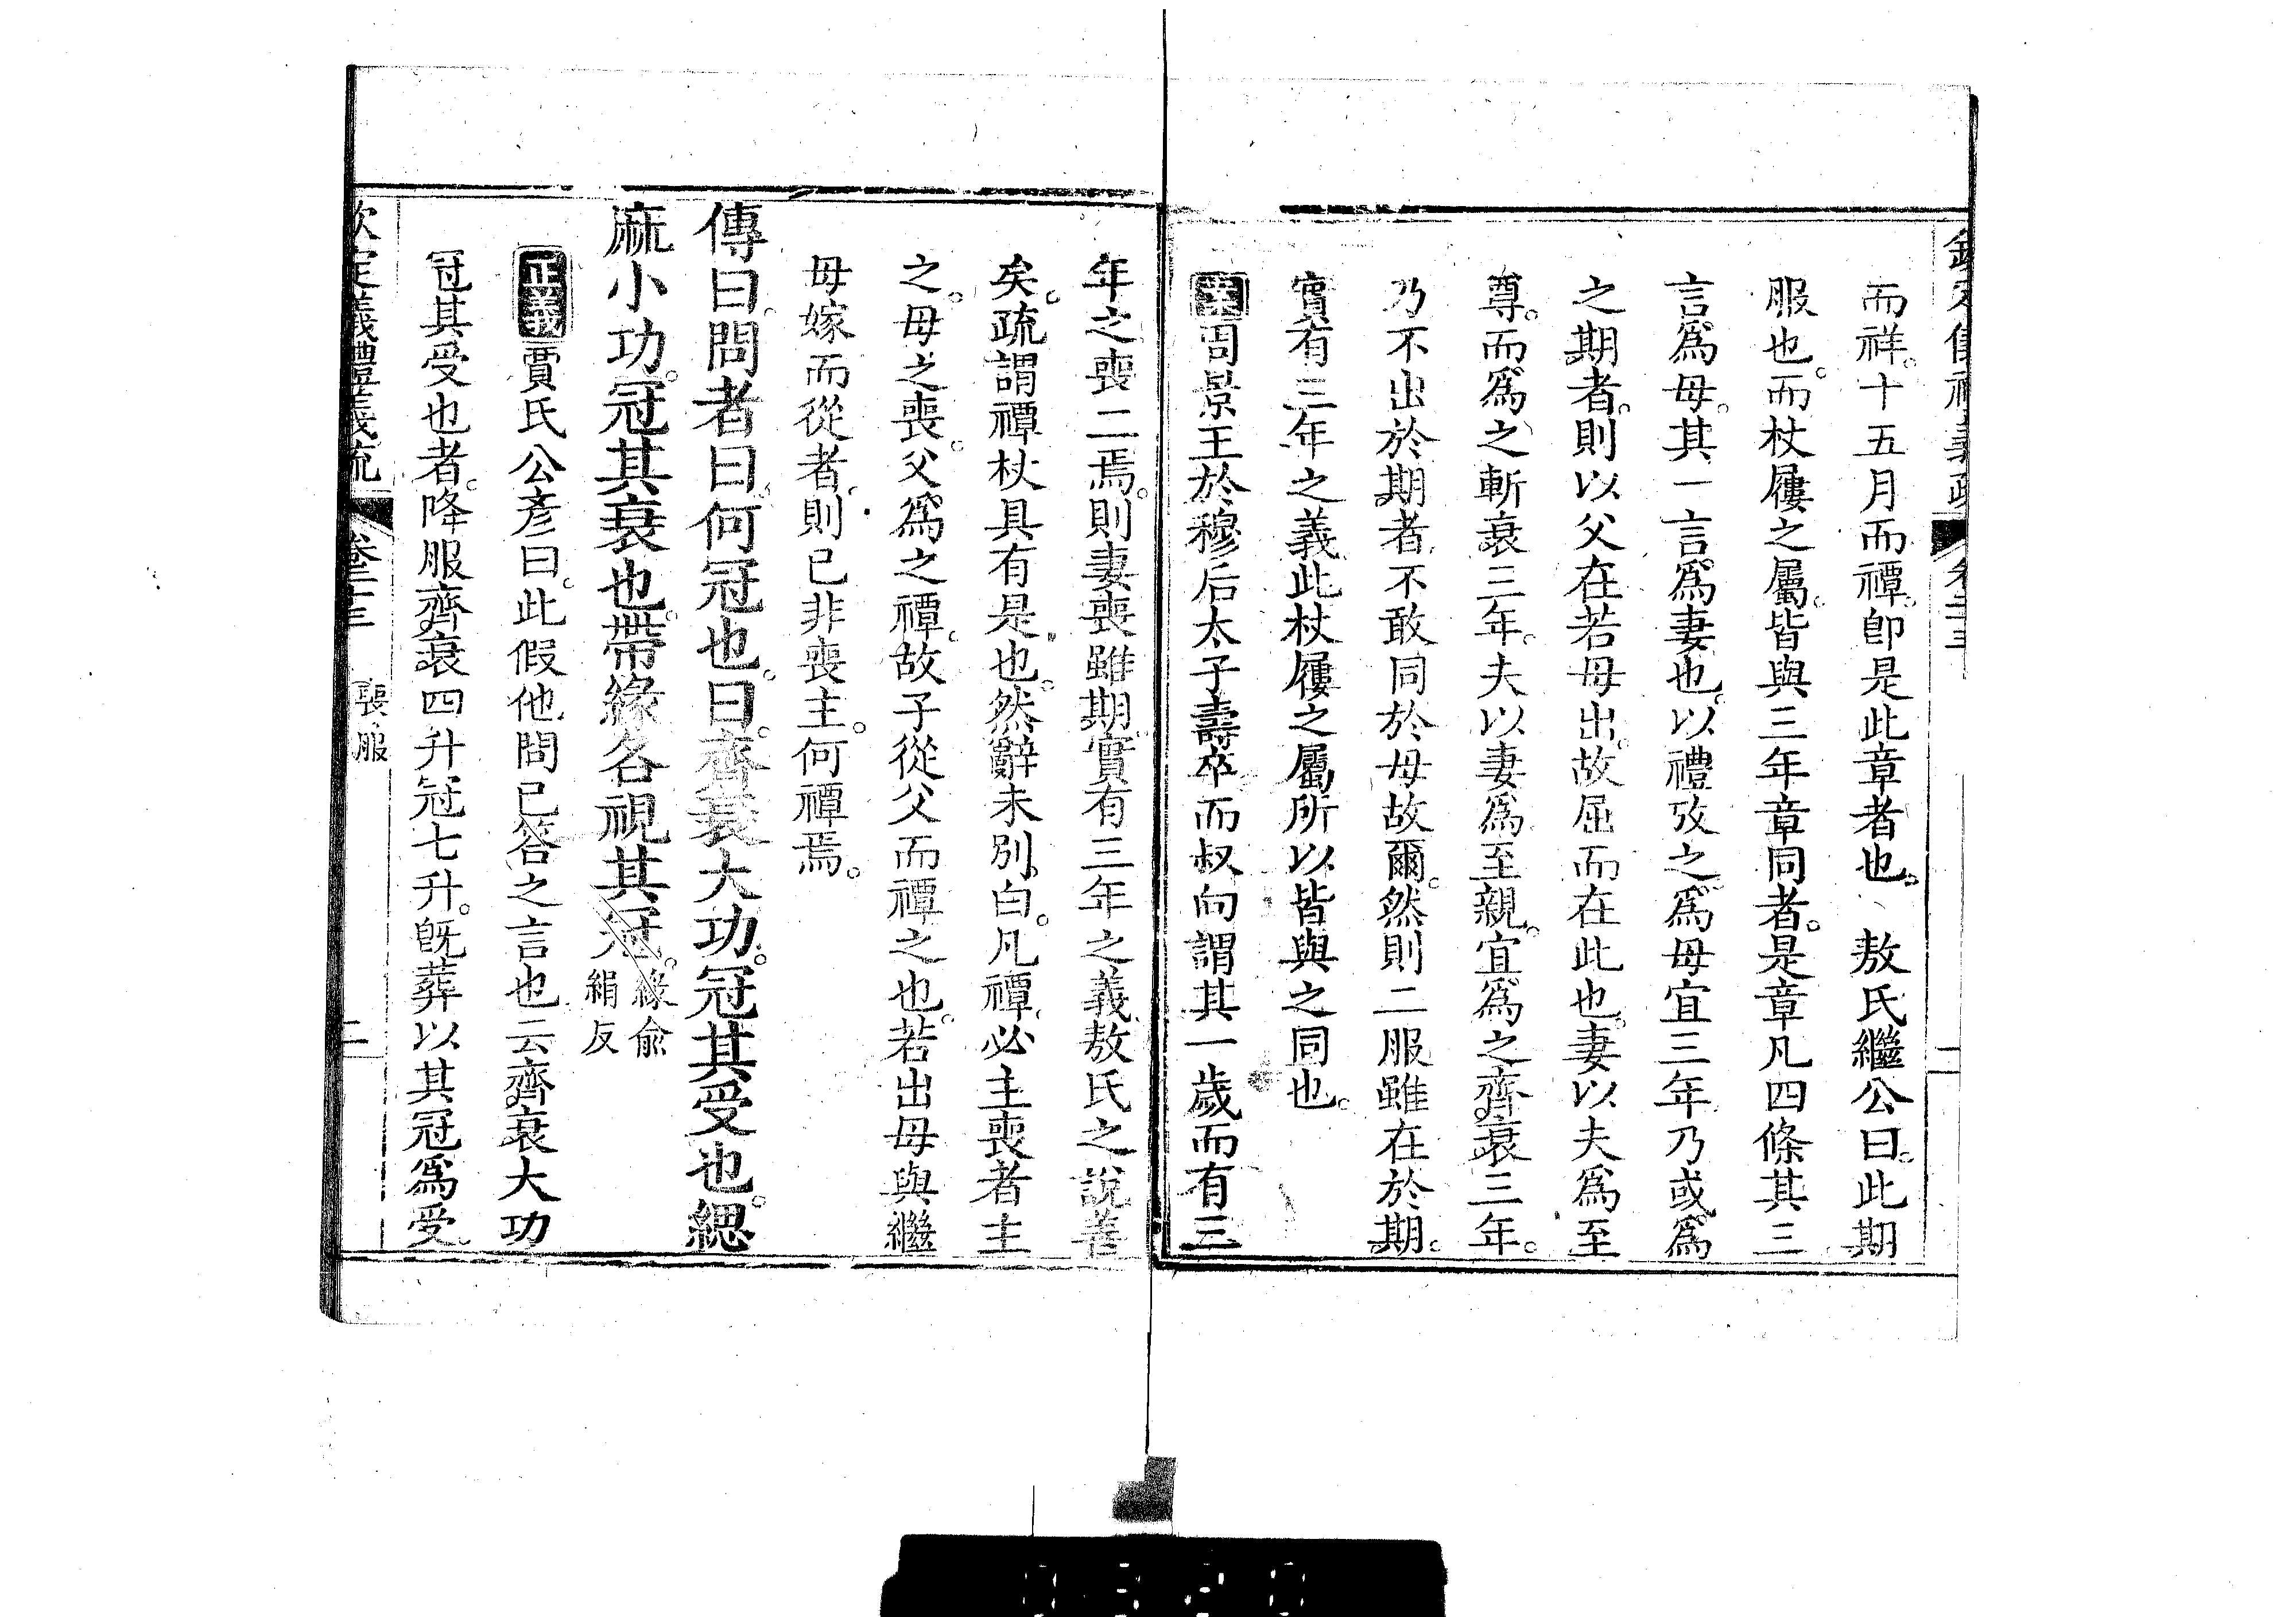 欽定儀禮義疏 卷二十三 二
而祥。十五月而禫。卽是此章者也。 敖氏繼公曰。此期
服也。而杖屨之屬。皆與三年章同者。是章凡四條其三
言爲母。其一言爲妻也。以禮攷之。爲母宜三年乃或爲
之期者。則以父在若母出。故屈而在此也。妻以夫爲至
尊。而爲之斬衰三年。夫以妻爲至親。宜爲之齊衰三年。
乃不出於期者不敢同於母故爾。然則二服雖在於期。
實有三年之義此杖屨之屬所以皆與之同也。
案周景王於穆后太子壽卒而叔向謂其一歲而有三
年之喪二焉。則妻喪雖期實有三年之義敖氏之說善
矣。疏謂禫杖具有是也。然辭未別白。凡禫必主喪者主
之。母之喪。父爲之禫。故子從父而禫之也。若出母與繼
母嫁而從者。則已非喪主。何禫焉。
傳曰。問者曰。何冠也。曰。齊衰大功。冠其受也。緦
麻小功。冠其衰也。帶緣各視其冠。緣俞
絹反
正義賈氏公彥曰。此假他問已答之言也云齊衰大功
冠其受也者。降服齊衰四升冠七升。旣葬以其冠爲受
欽定義禮義疏 卷二十三 喪服 二